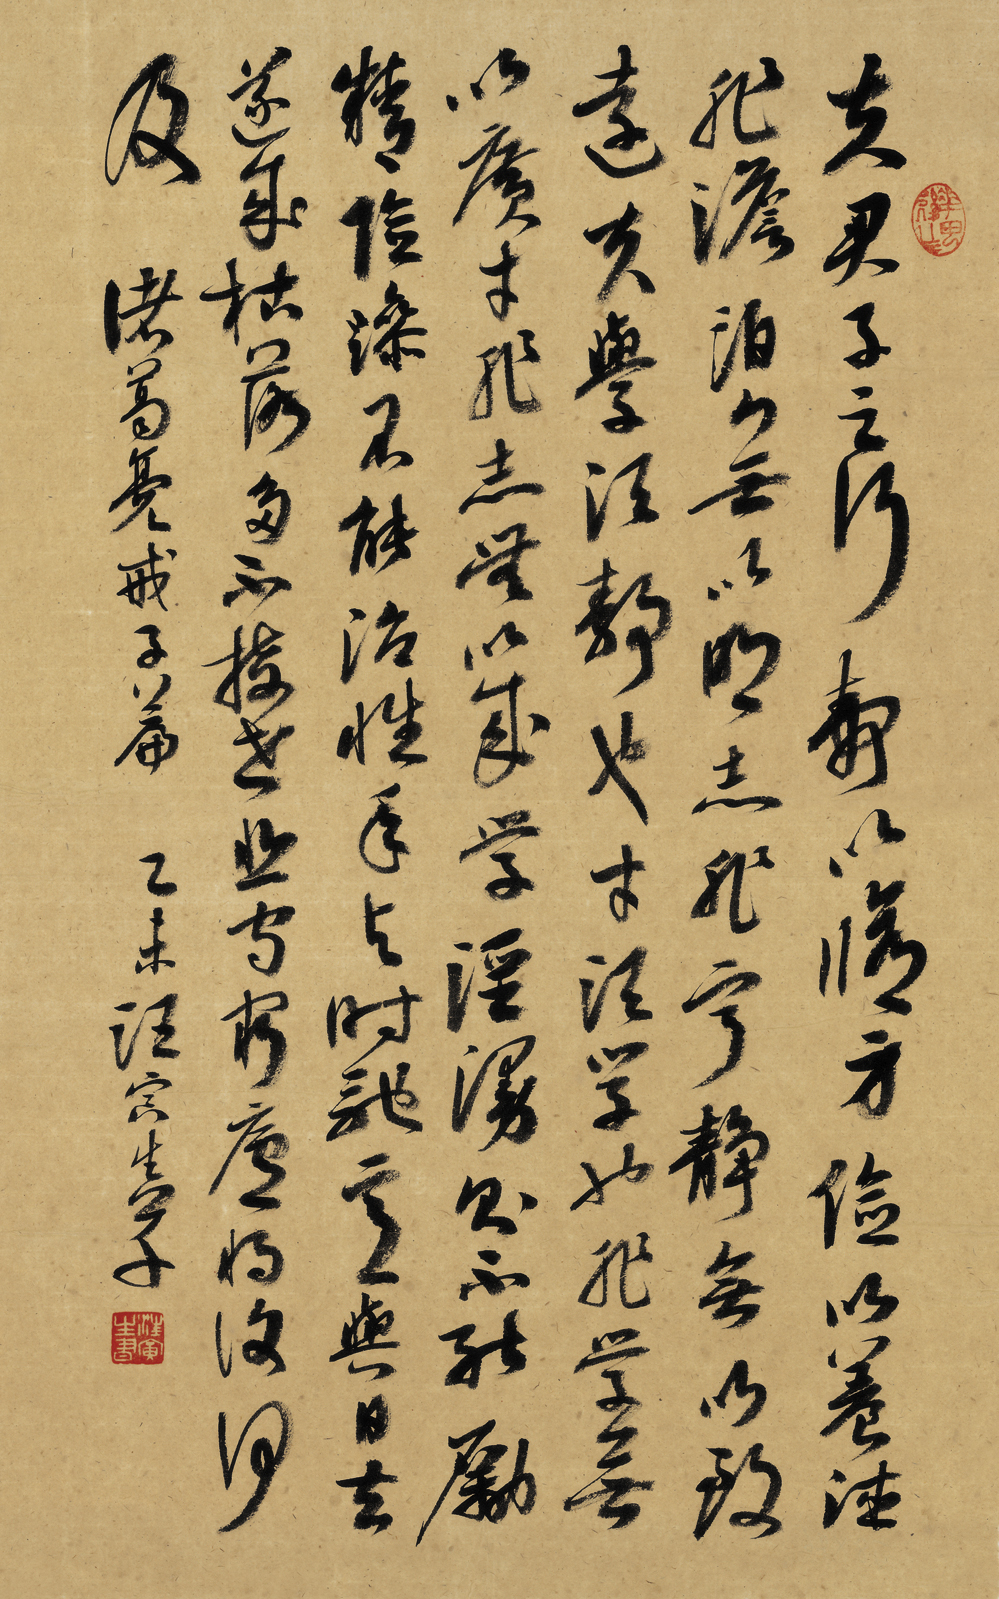 夫君子之行靜以修身儉以養德
非澹泊無以明志非寧靜無以致
遠夫學須靜也才須學也非學無
以廣才非志無以成學淫漫則不能勵
精險躁不能治性年與時馳意與日去
遂成枯落多不接世悲守窮廬將復何
及 諸葛亮戒子篇 乙未汪寅生書
汪寅生書